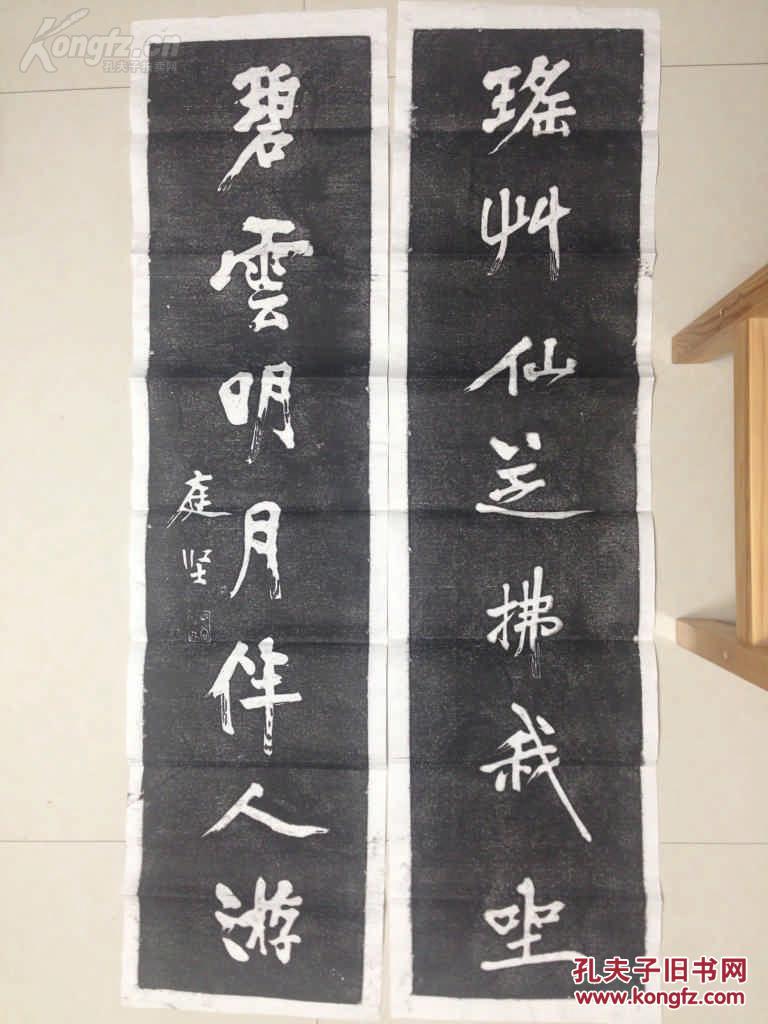 瑤艸仙芝拂我坐
碧雲明月伴人游
庭坚
Kongfz.cn
孔夫子拍卖网
孔夫子旧书网
www.kongfz.com